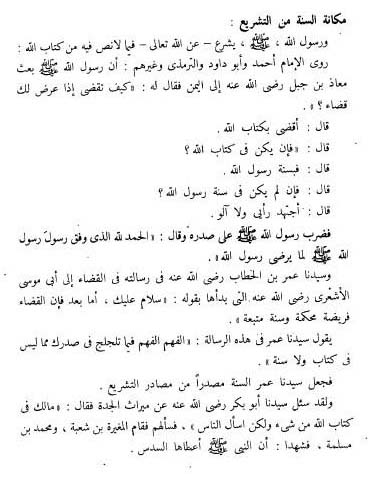 مكانة السنة من التشريع :
ورسول الله ، ﷺ ، يشرع – عن الله تعالى – فيما لانص فيه من كتاب الله :
روى الإمام أحمد وأبو داود والترمذى وغيرهم : أن رسول الله ﷺ بعث
معاذ بن جبل رضى الله عنه إلى اليمن فقال له : «كيف تقضى إذا عرض لك
قضاء ؟ » .
قال : أقضى بكتاب الله .
قال : «فإن لم يكن فى كتاب الله ؟
قال : فبسنة رسول الله .
قال : فإن لم يكن فى سنة رسول الله ؟
قال : أجتهد رأيى ولا آلو .
فضرب رسول الله ﷺ على صدره وقال : «الحمد لله الذى وفق رسول رسول
الله ﷺ لما يرضى رسول الله » .
وسيدنا عمر بن الخطاب رضى الله عنه فى رسالته فى القضاء إلى أبى موسى
الأشعرى رضى الله عنه التى بدأها بقوله : «سلام عليك ، أما بعد فإن القضاء
فريضة محكمة وسنة متبعة » .
يقول سيدنا عمر فى هذه الرسالة : «الفهم الفهم فيما تلجلج فى صدرك مما ليس
فى كتاب ولا سنة » .
فجعل سيدنا عمر السنة مصدراً من مصادر التشريع .
ولقد سئل سيدنا أبو بكر رضى الله عنه عن ميراث الجدة فقال : «مالك فى
كتاب الله من شىء ولكن اسأل الناس » ، فسألهم فقام المغيرة بن شعبة ، ومحمد بن
مسلمة ، فشهدا : أن النبى ﷺ أعطاها السدس .